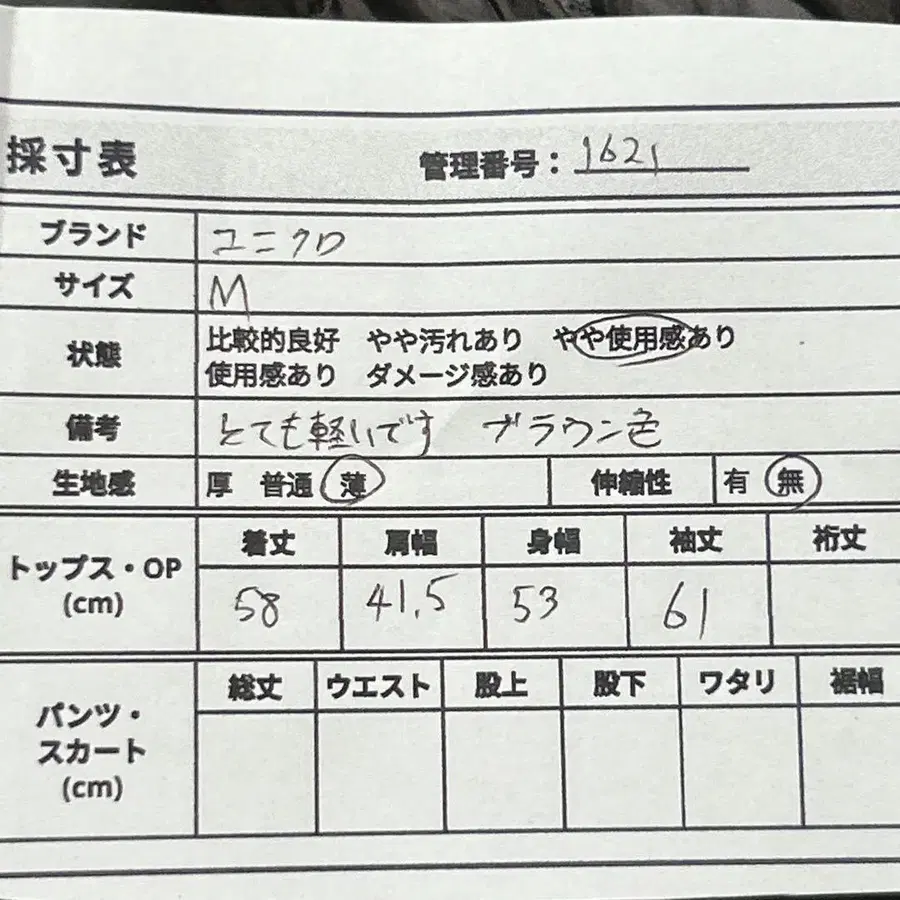 採寸表 管理番号：1621
ブランド ユニクロ
サイズ M
状態 比較的良好 やや汚れあり やや使用感あり
使用感あり ダメージ感あり
備考 とても軽いです ブラウン色
生地感 厚 普通 薄 伸縮性 有 無
着丈 肩幅 身幅 袖丈 裄丈
トップス・OP
(cm)
58 41.5 53 61
総丈 ウエスト 股上 股下 ワタリ 裾幅
パンツ・
スカート
(cm)